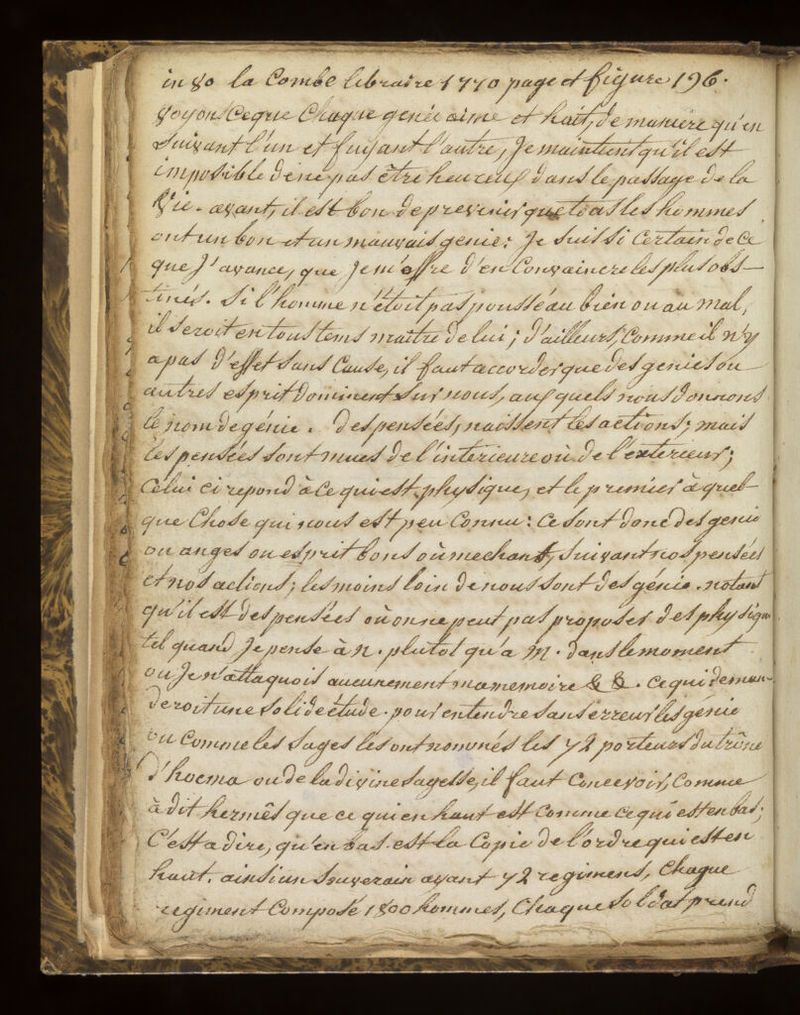 in 8o la Combe libraire 1770 page et figure 196.
Voyons Ceque Chaque genie aime et hait, de maniere qu'en
Suivant l'un et fuyant l'autre, Je maintient qu'il est
impossible de ne pas être heureux dans le passage de la
Vie. avant, il est bon de prevenir que tous les hommes
ont un bon et un mauvais genie: Je suis si Certain de Ce
que J'avance, que Je m'offre d'en Convaincre les plus obs—
tinés. Si l'homme n'étoit pas pousse au bien ou au mal,
il seroit en tous tems maitre de lui; d'ailleurs, Comme il n'y
a pas d'effet sans Cause, il faut accorder que des genies ou
autres esprit dominent sur nous, aux quels nous donnons
le nom de génie. des pensées, naissent les actions; mais
les pensées sont mues de l'interieure où de l'exterieur;
Celui Ci repond à Ce qui est physique, et le premier à quel-
que Chose qui nous est peu Connu: Ce sont donc des genie
ou anges ou esprit bons où mechant, suivant nos pensées
et nos actions; les moins loin de nous sont des génie. notant
qu'il est des pensées où on ne peut pas proposer des physique
tel quand Je pense à N. plutôt qu'a M. dans le moment
ou Je n'attaquois aucunement ma memoire & &. Ce qui deman-
deroit une solide étude. pour entendre sans erreur les génie
ou Comme les Sages les ont nommés les 72 porteurs du trône
d'hocma ou de la divine Sagesse, il faut Concevoir, Comme
à dit hermês que ce qui en haut est Comme Ce qui est en bas;
C'est a dire, qu'en bas est la Copie de l'ordre qui est en
haut. ainsi un Souverain ayant 72 regiments, Chaque
regiment Composé 1800 hommes, Chaque Soldat prend